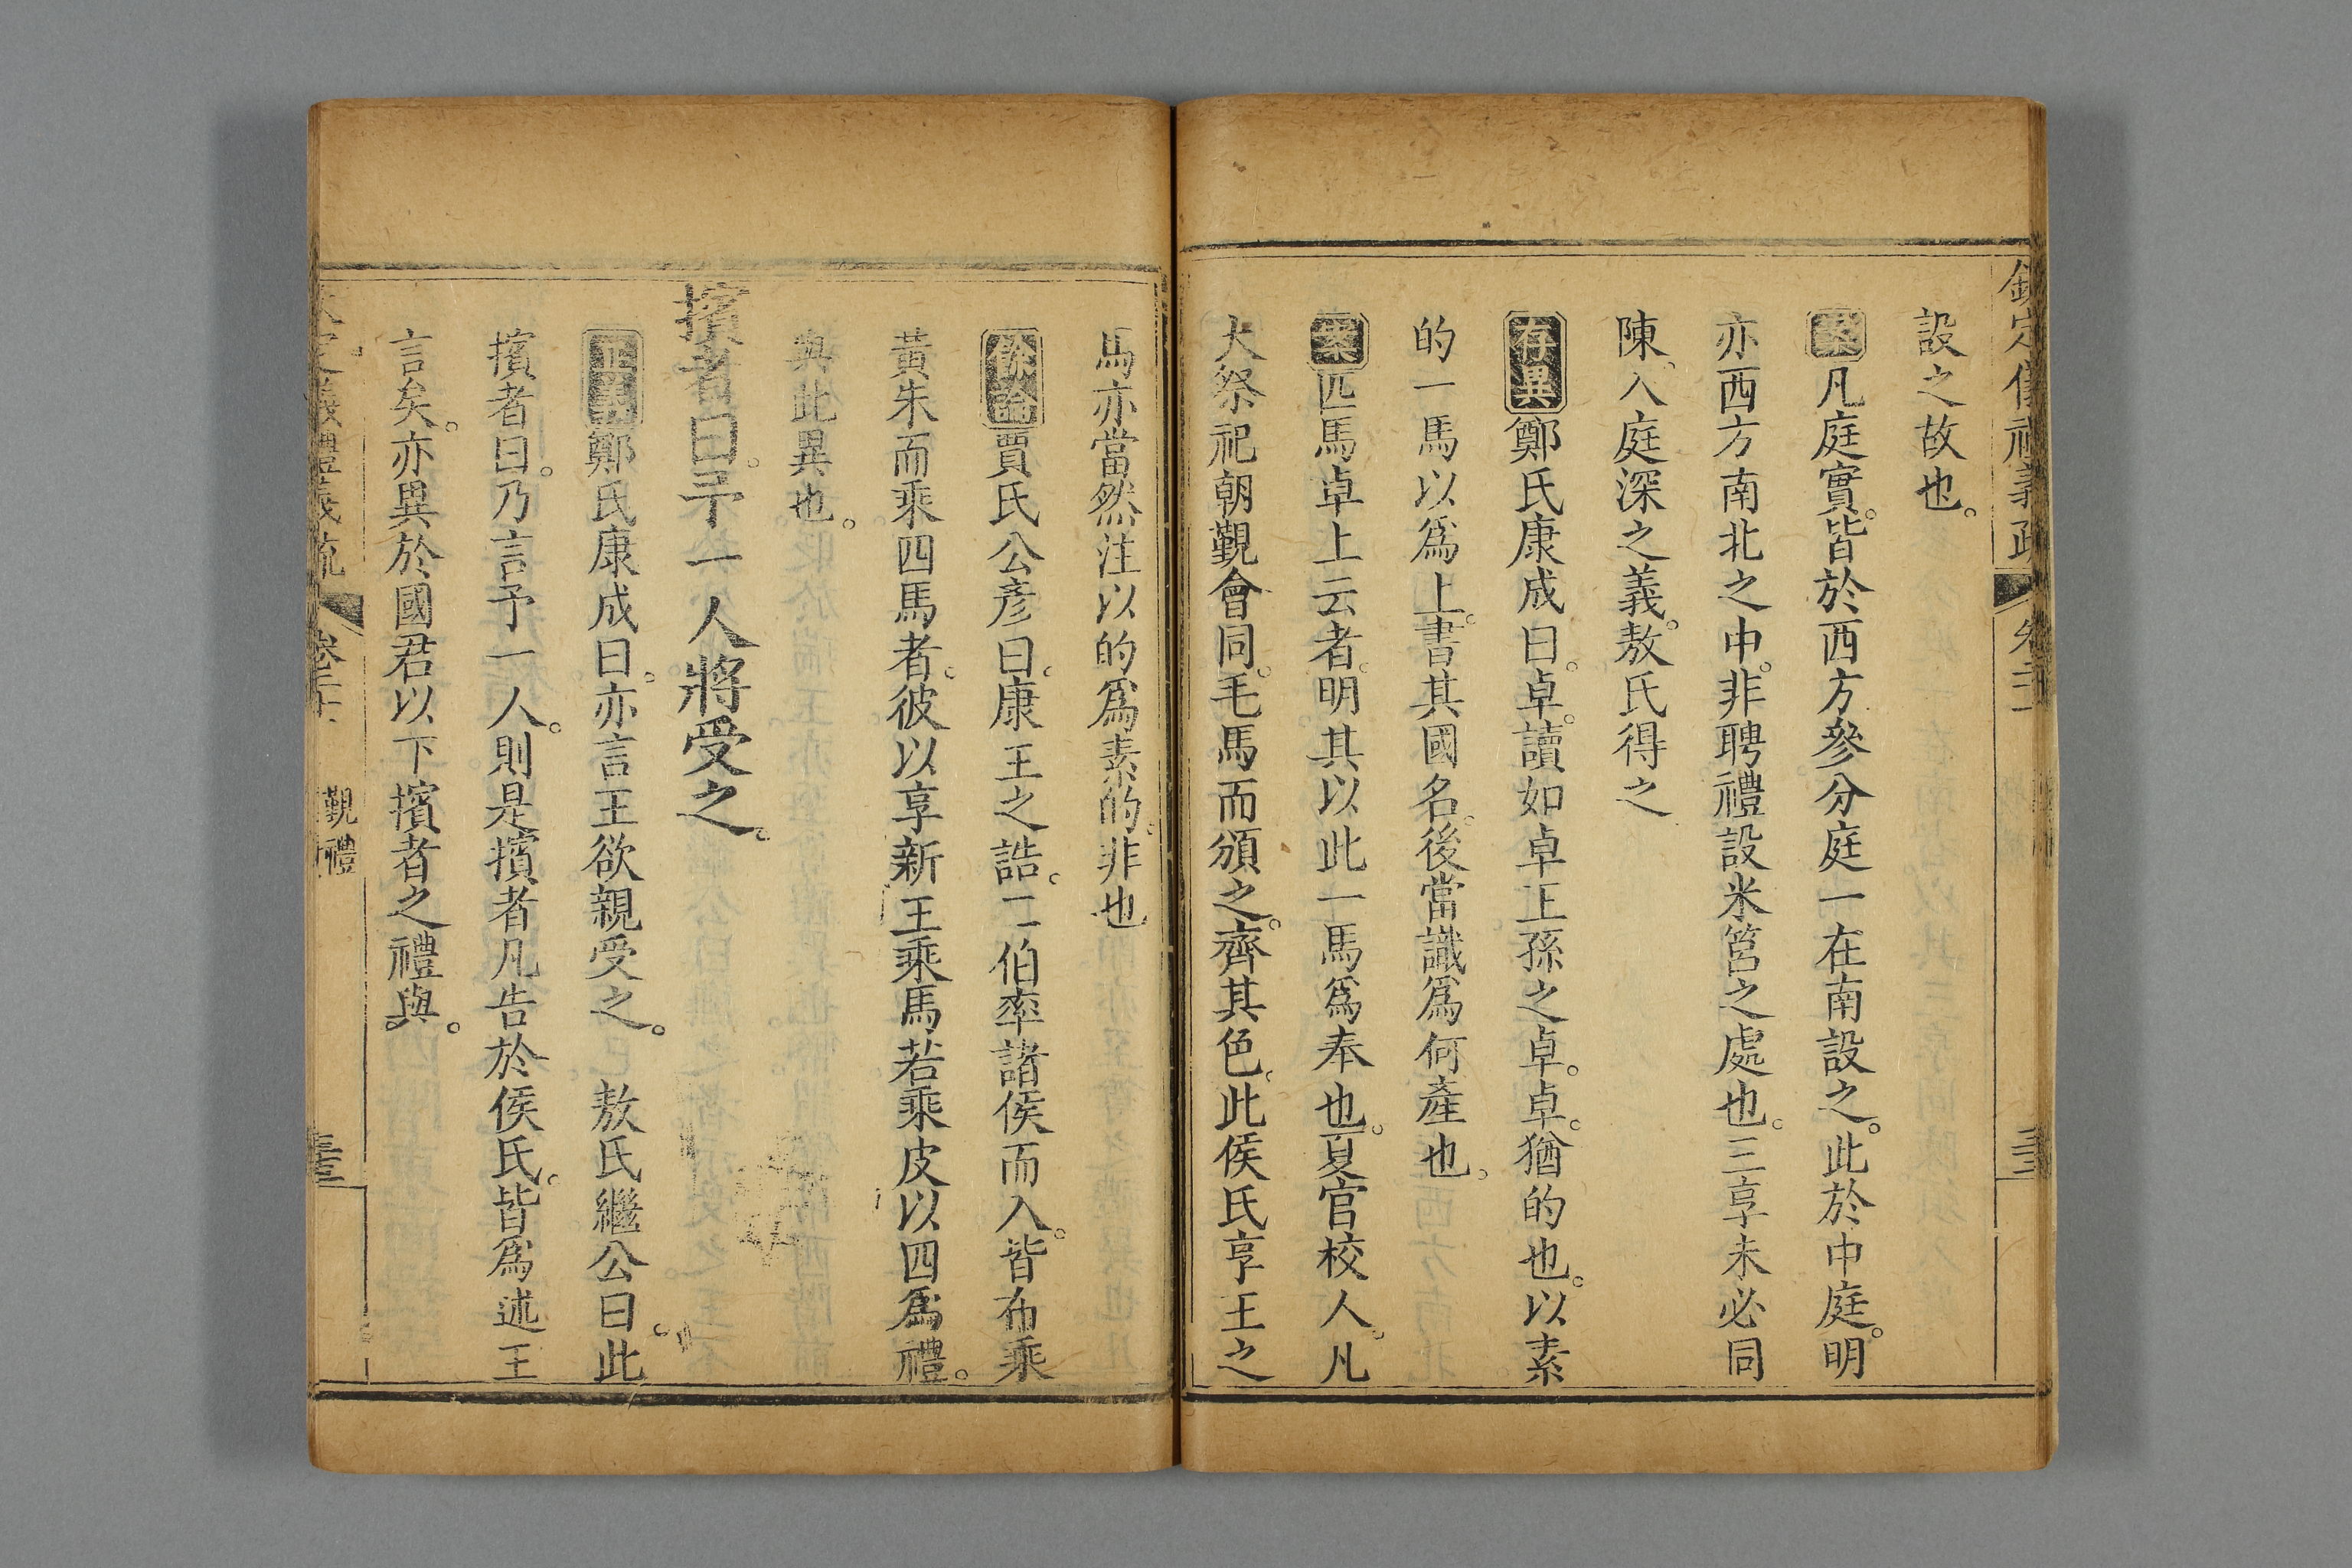 欽定儀禮義疏 卷二十一
設之故也。
案凡庭實。皆於西方參分庭一在南設之。此於中庭。明
亦西方南北之中。非聘禮設米筥之處也。三享未必同
陳。入庭深之義。敖氏得之
存異鄭氏康成曰。卓。讀如卓王孫之卓。卓。猶的也。以素
的一馬以爲上。書其國名。後當識爲何產也。
案匹馬卓上云者。明其以此一馬爲奉也。夏官校人。凡
大祭祀朝覲會同。毛馬而頒之。齊其色。此侯氏享王之
馬亦當然注以的爲素的。非也
餘論賈氏公彥曰。康王之誥。二伯率諸侯而入。皆布乘
黃朱而乘四馬者。彼以享新王乘馬若乘皮以四爲禮。
與此異也。
擯者曰。予一人將受之。
正義鄭氏康成曰。亦言王欲親受之。 敖氏繼公曰。此
擯者曰。乃言予一人。則是擯者凡告於侯氏。皆爲述王
言矣。亦異於國君以下擯者之禮與。
義禮義疏 覲禮